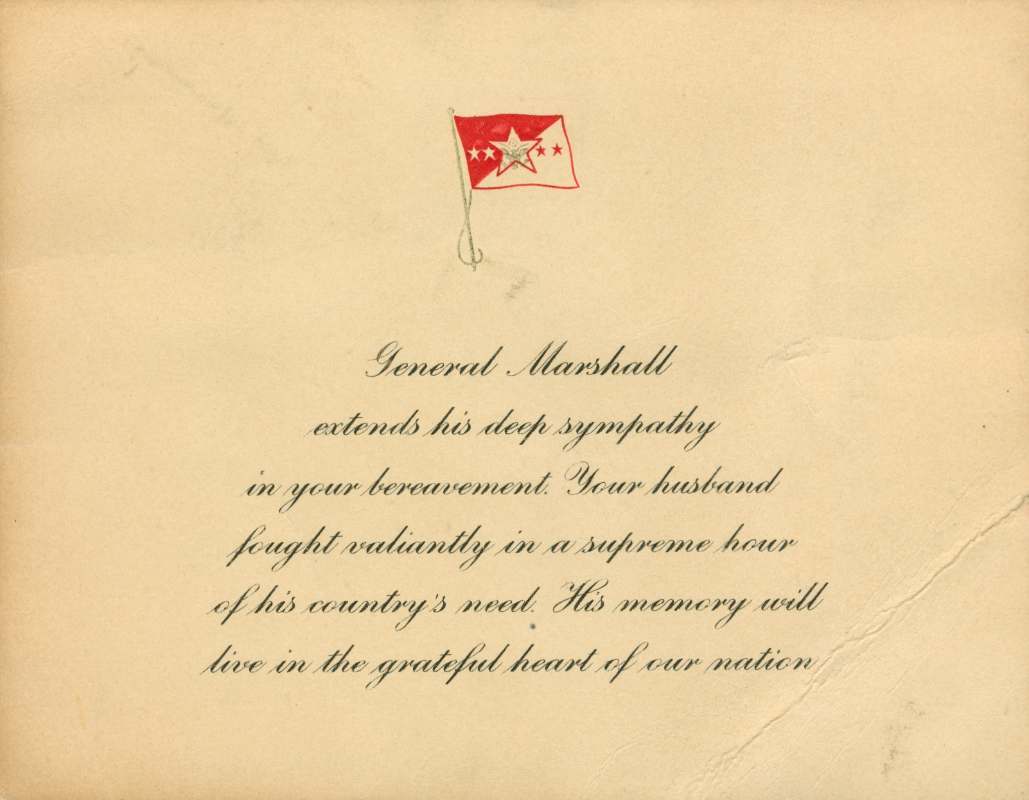 General Marshall
extends his deep sympathy
in your bereavement. Your husband
fought valiantly in a supreme hour
of his country's need. His memory will
live in the grateful heart of our nation